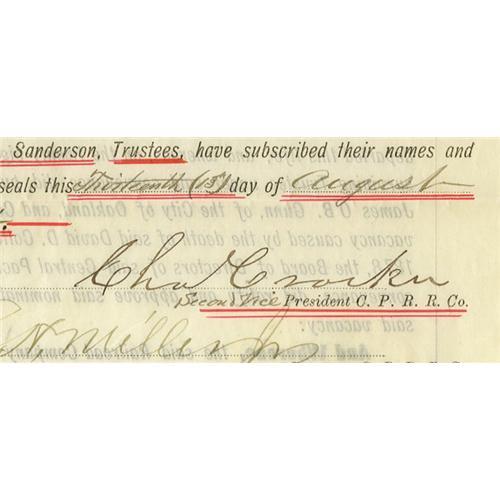 Sanderson, Trustees, have subscribed their names and
seals this Thirteenth (13) day of August
Chas Crocker
Second Vice President C. P. R. R. Co.
E H Miller Jr